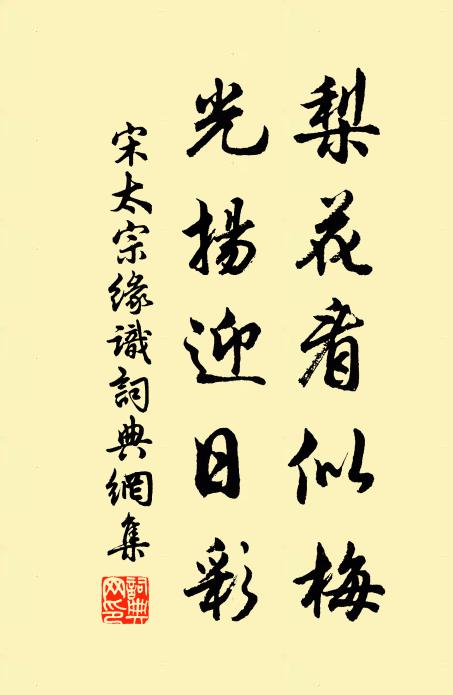 梨花看似梅
光揚迎日彩
宋太宗緣識詞典網集
詞典網印